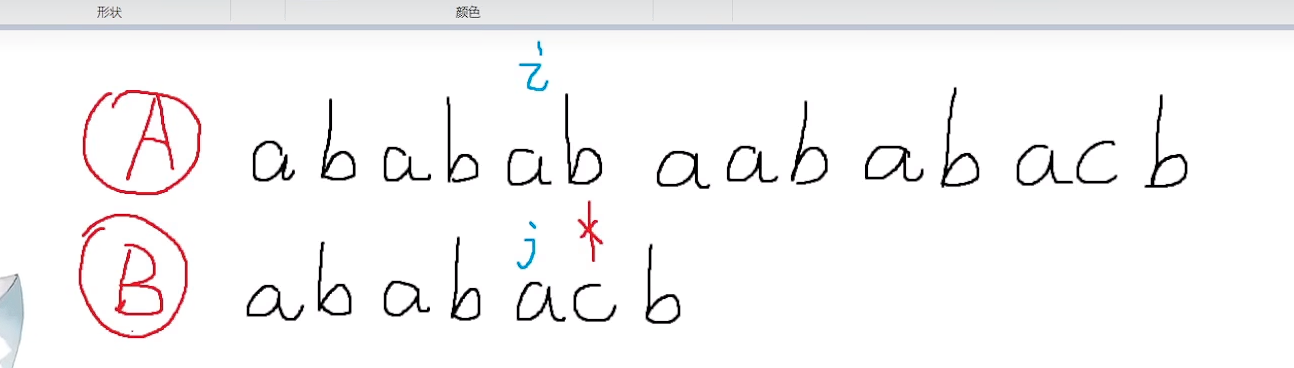 形状 颜色
i
A a b a b a b a a b a b a c b
j *
B a b a b a c b